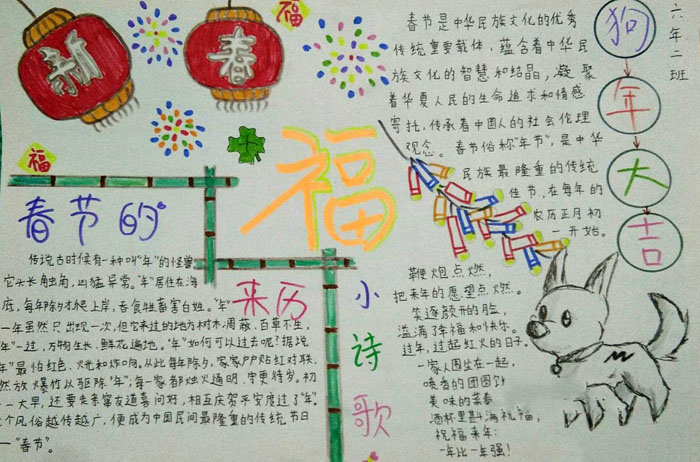 新春
福
福
春节是中华民族文化的优秀
传统重要载体，蕴含着中华民
族文化的智慧和结晶，凝聚
着华夏人民的生命追求和情感
寄托，传承着中国人的社会伦理
观念。春节俗称"年节"，是中华
民族最隆重的传统
佳节，在每年的
农历正月初
一开始。
六年二班
狗年大吉
福
春节的
来历
传说古时候有一种叫"年"的怪兽，
它头长角，凶猛异常。"年"居住在海
底，每年除夕爬上岸，吞食牲畜害百姓。"年"
一年虽然只出现一次，但它来过的地方树木凋蔽，百草不生，
"年"一过，万物生长，鲜花遍地。"年"如何可以过去呢？据说
"年"最怕红色、火光和炸响。从此每年除夕，家家户户贴红对联，
然放爆竹以驱除"年"；每一家都烛火通明，守更待岁。初
一大早，还要走亲窜友道喜问好，相互庆贺平安度过了"年"。
个风俗越传越广，便成为中国民间最隆重的传统节日
"春节"。
小诗歌
鞭炮点燃，
把来年的愿望点燃。
笑逐颜开的脸，
溢满幸福和快乐。
过年，过起红火的日子。
一家人围坐在一起，
嚼香的团圆饺
美味的菜肴
酒杯里斟满祝福，
祝福来年：
一年比一年强！